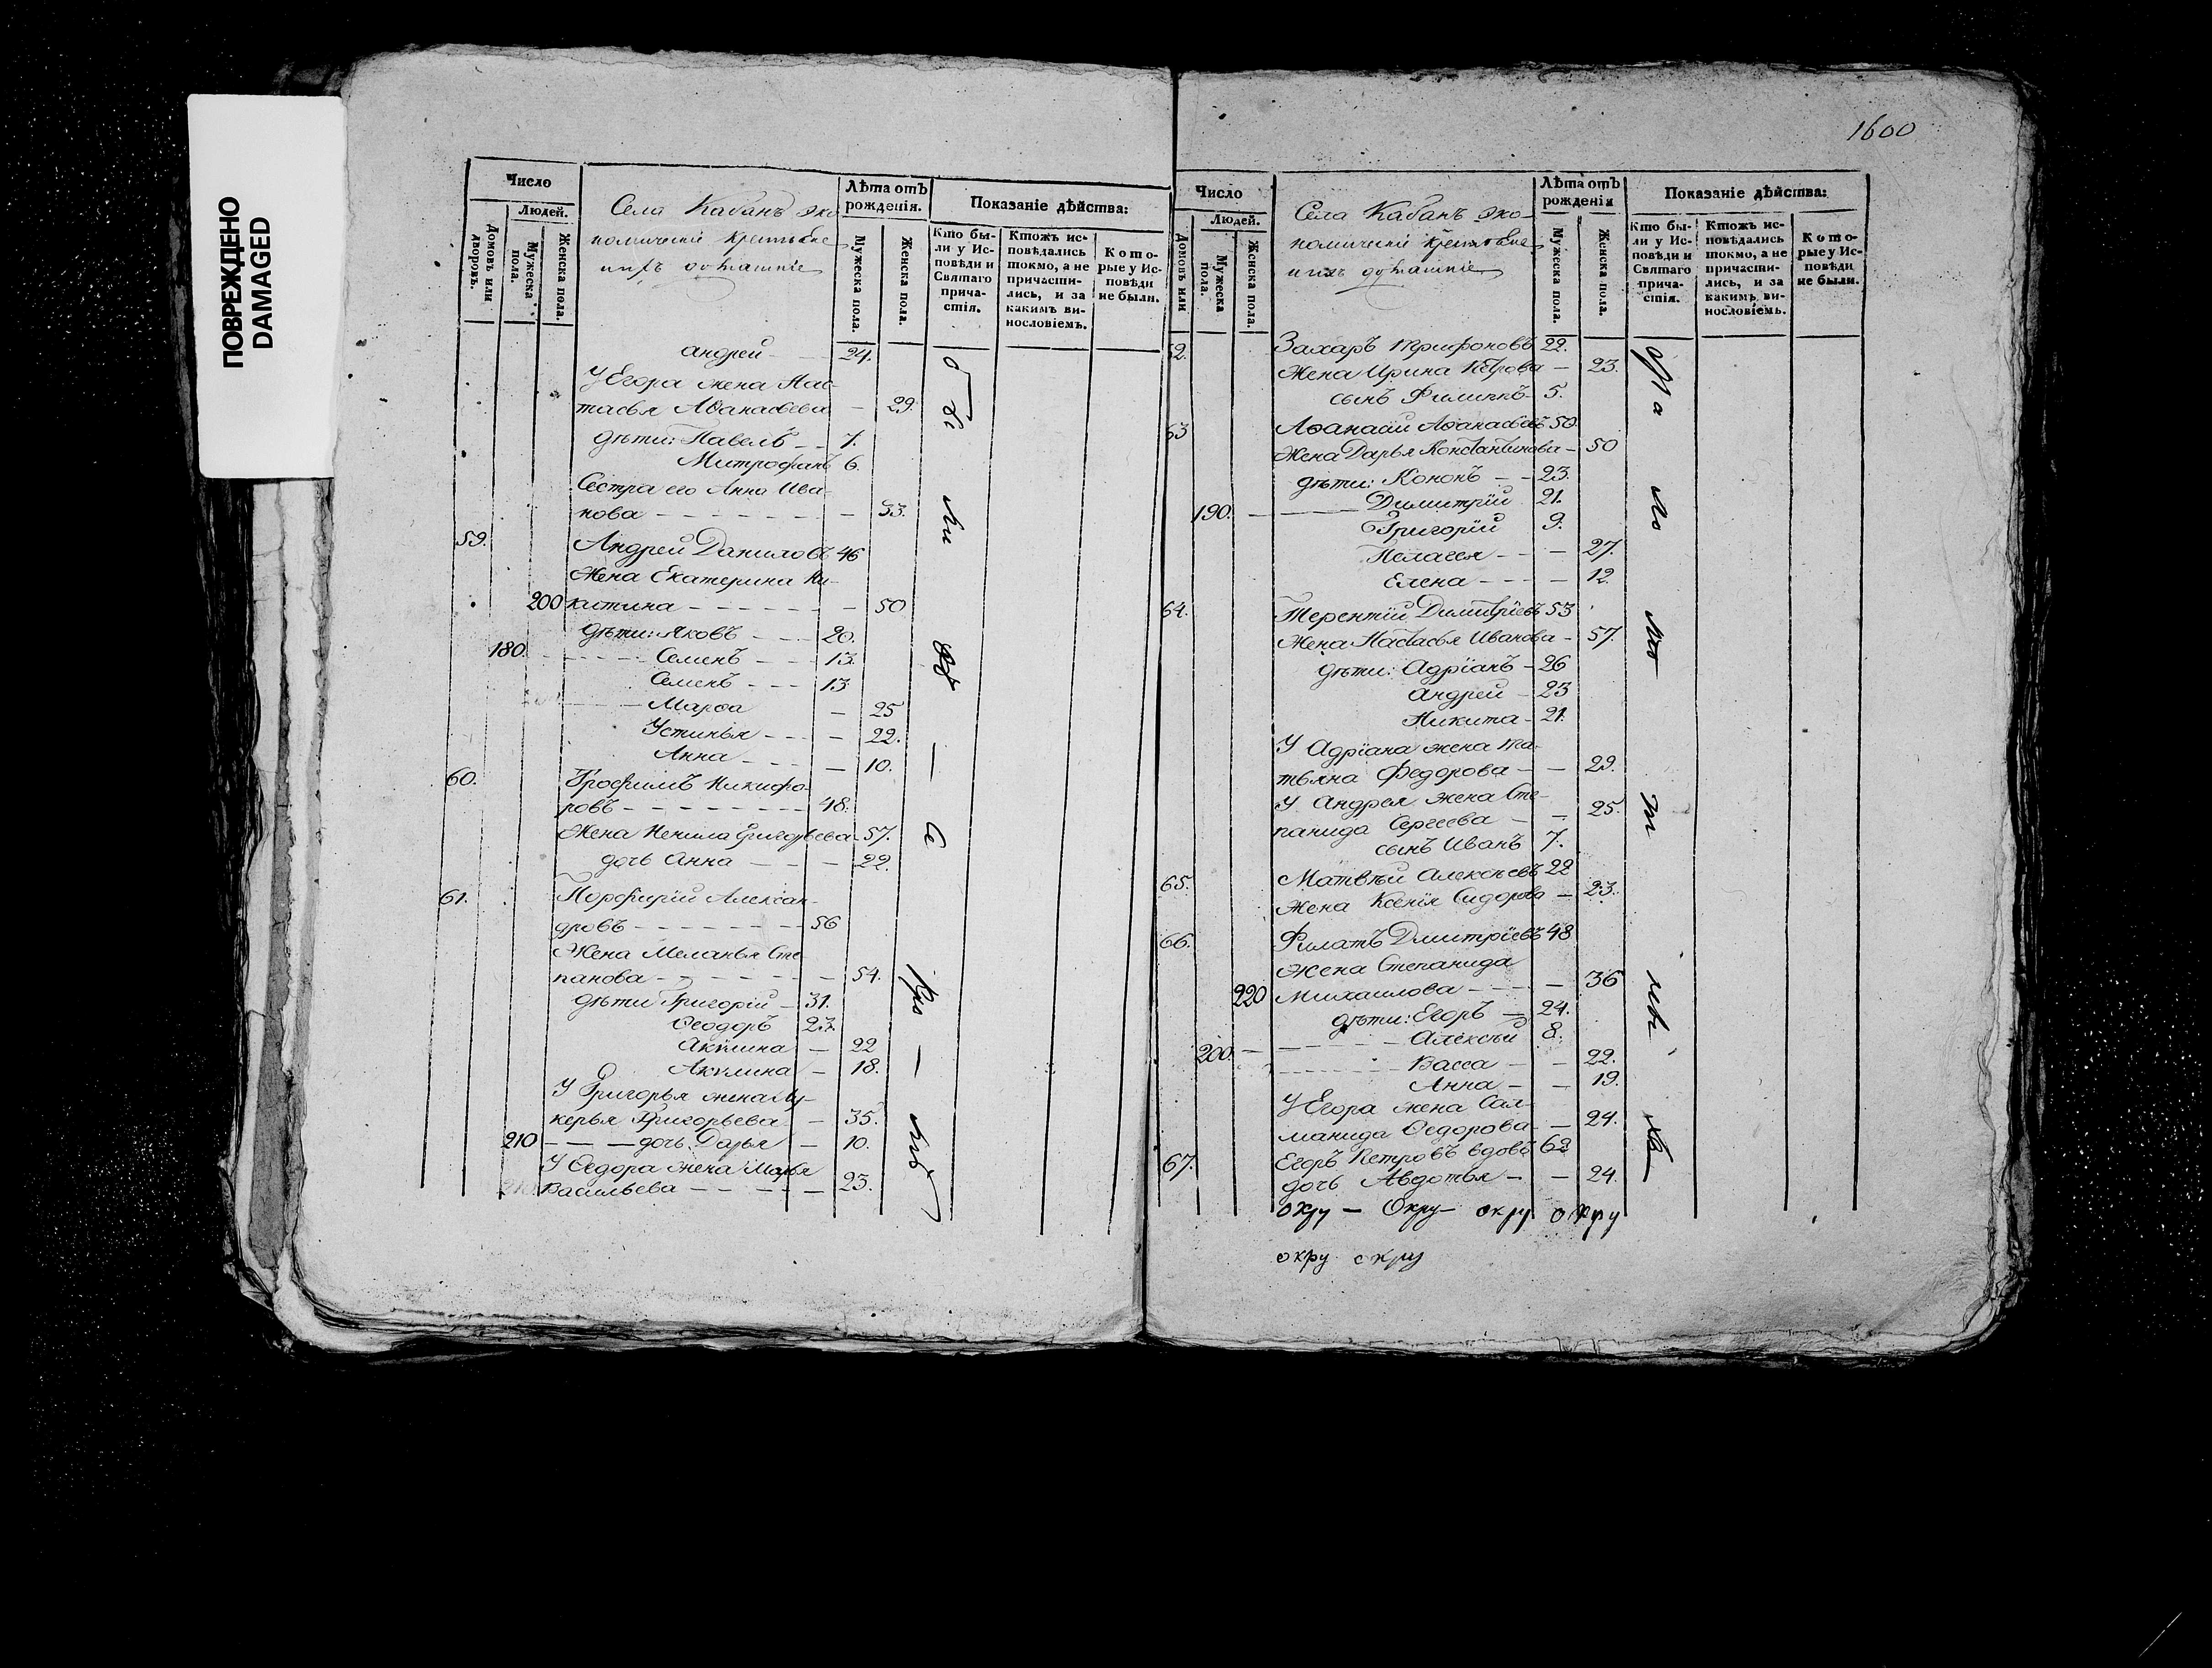 ПОВРЕЖДЕНО
DAMAGED
Число
Людей.
Домовъ или дворовъ.
Мужеска пола.
Женска пола.
Села Кабанъ эко
номическіе крестьяне
ихъ домашніе
Лѣта отъ
рожденія.
Мужеска пола.
Женска пола.
Показаніе дѣйства:
Кто бы-
ли у Ис-
повѣди и
Святаго
прича-
стія.
Ктожъ ис-
повѣдались
токмо, а не
причасти-
лись, и за
какимъ ви-
нословіемъ.
Кото-
рые у Ис-
повѣди
не были.
Андрей - 24.
У Егора жена Нас-
тасья Аѳанасьева - 29.
дѣти: Павелъ - - 7.
Митрофанъ 6.
Сестра его Анна Ива-
нова - 53.
59. Андрей Даниловъ 46
Жена Екатерина Ни-
200 китина - 50
дѣти: Яковъ - 20.
180. Семенъ - 13.
Семенъ - 13
Марѳа - 25
Устинья - 22.
Анна - 10.
60. Трофимъ Никифо-
ровъ - 48.
Жена Ненила Григорьева 57.
дочь Анна - 22.
61. Порфирій Алексан-
дровъ - 56
Жена Меланья Сте
панова - 54.
дѣти Григорій - 31.
Ѳеодоръ 23.
Акулина - 22
Акулина - 18.
У Григорья жена Лу-
керья Григорьева - 35.
210 - дочь Дарья - 10.
У Ѳедора жена Марья
Васильева - 23.
1600
Число
Людей.
Домовъ или
Мужеска пола.
Женска пола.
Села Кабанъ эко-
номическіе крестьяне
ихъ домашніе
Лѣта отъ
рожденія
Мужеска пола.
Женска пола.
Показаніе дѣйства:
Кто бы-
ли у Ис-
повѣди и
Святаго
прича-
стія.
Ктожъ ис-
повѣдались
токмо, а не
причасти-
лись, и за
какимъ ви-
нословіемъ.
Кото-
рые у Ис-
повѣди
не были.
62. Захаръ Трифоновъ 22.
Жена Ирина Петрова - 23.
сынъ Филиппъ - 5.
63 Аѳанасій Аѳанасьевъ 50.
Жена Дарья Константинова - 50
дѣти: Кононъ - - 23.
190. Димитрій 21.
Григорій 9.
Пелагея - 27.
Елена - 12.
64. Терентій Димитріевъ 53
Жена Настасья Иванова - 57.
дѣти: Адріанъ - 26
Андрей - 23
Никита - 21.
У Адріана жена Та-
тьяна Федорова - 29.
У Андрея жена Сте-
панида Сергеева - 25.
сынъ Иванъ 7.
65. Матвѣй Алексѣевъ 22
Жена Ксенія Сидорова - 23.
66. Филатъ Дмитріевъ 48
Жена Степанида
220 Михаилова - 36
дѣти: Егоръ - 24.
200. Алексѣй 8.
Васса - 22.
Анна - 19.
У Егора жена Сал-
манида Ѳедорова - 24.
67. Егоръ Петровъ вдовъ 62
дочь Авдотья - 24.
окру - Окру - окру окру
окру окру